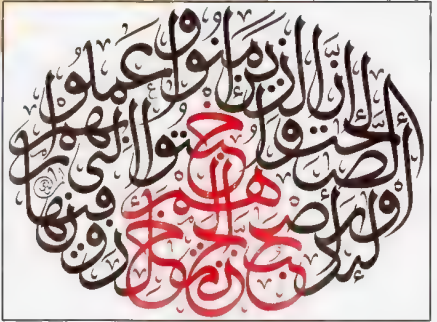 إن الذين ءامنوا وعملوا
الصلحت وأخبتوا إلى ربهم
أولئك أصحب الجنة هم فيها خلدون